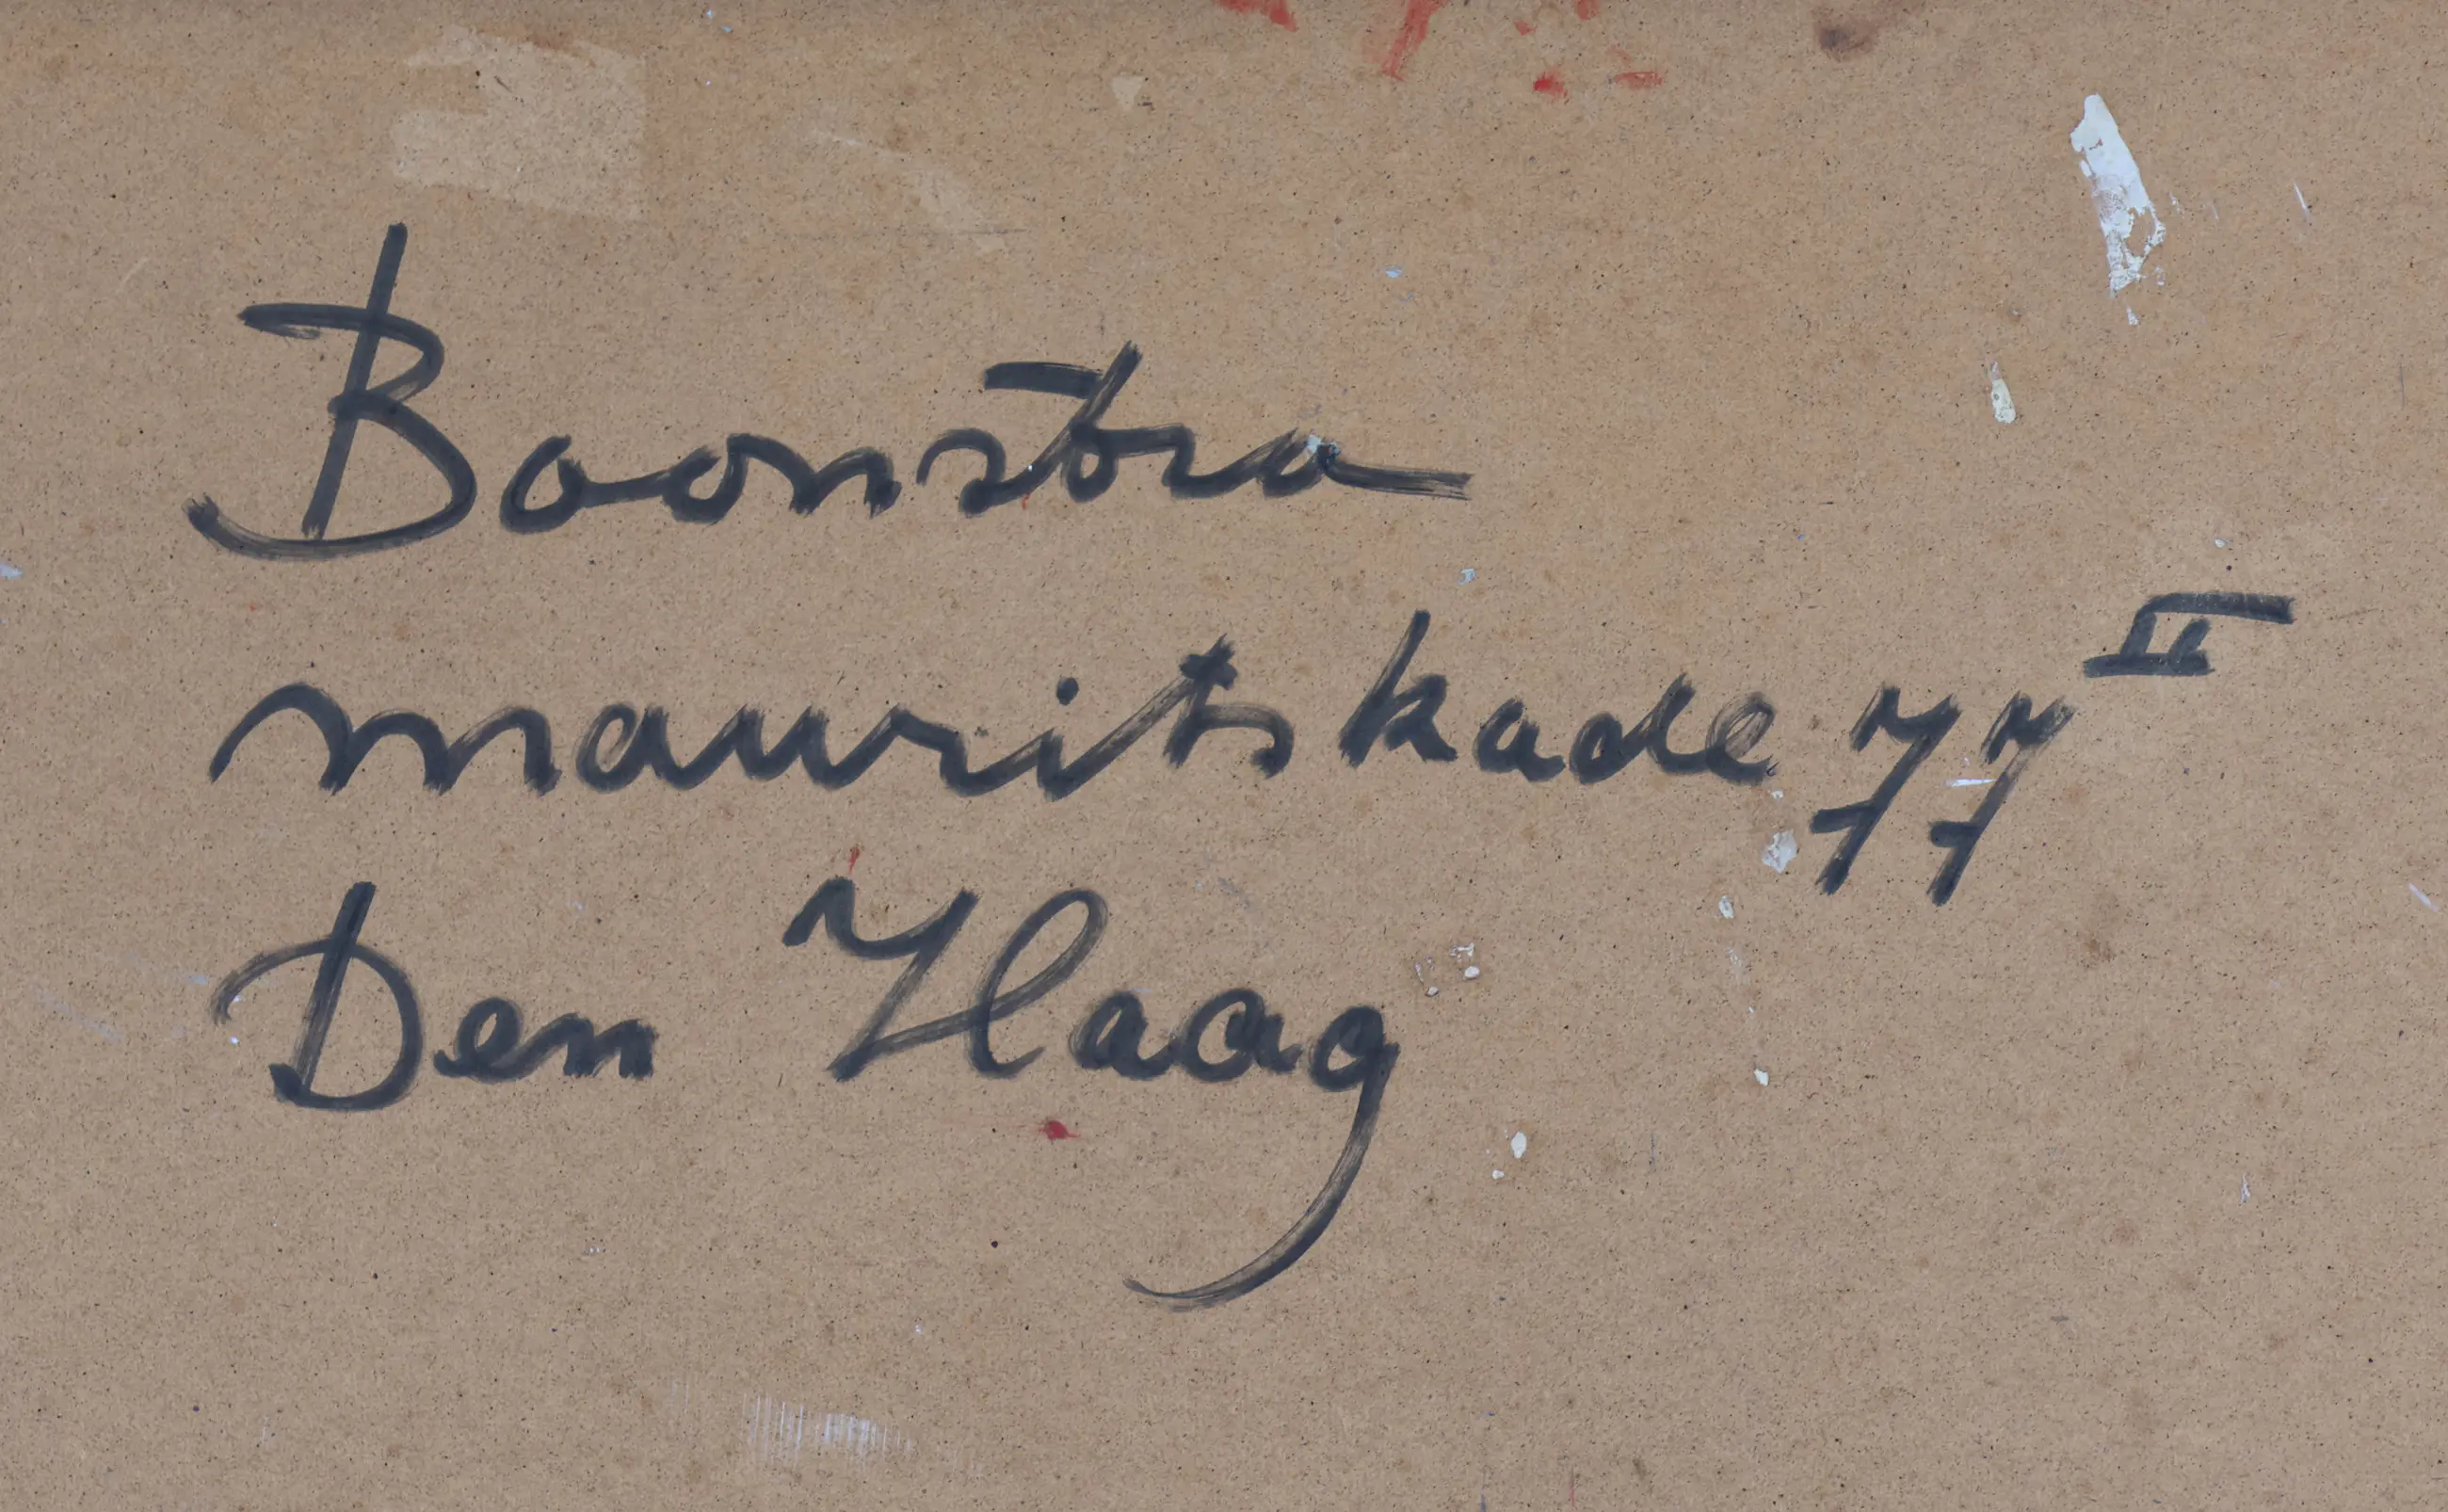 Boonstra
mauritskade 77 II
Den Haag